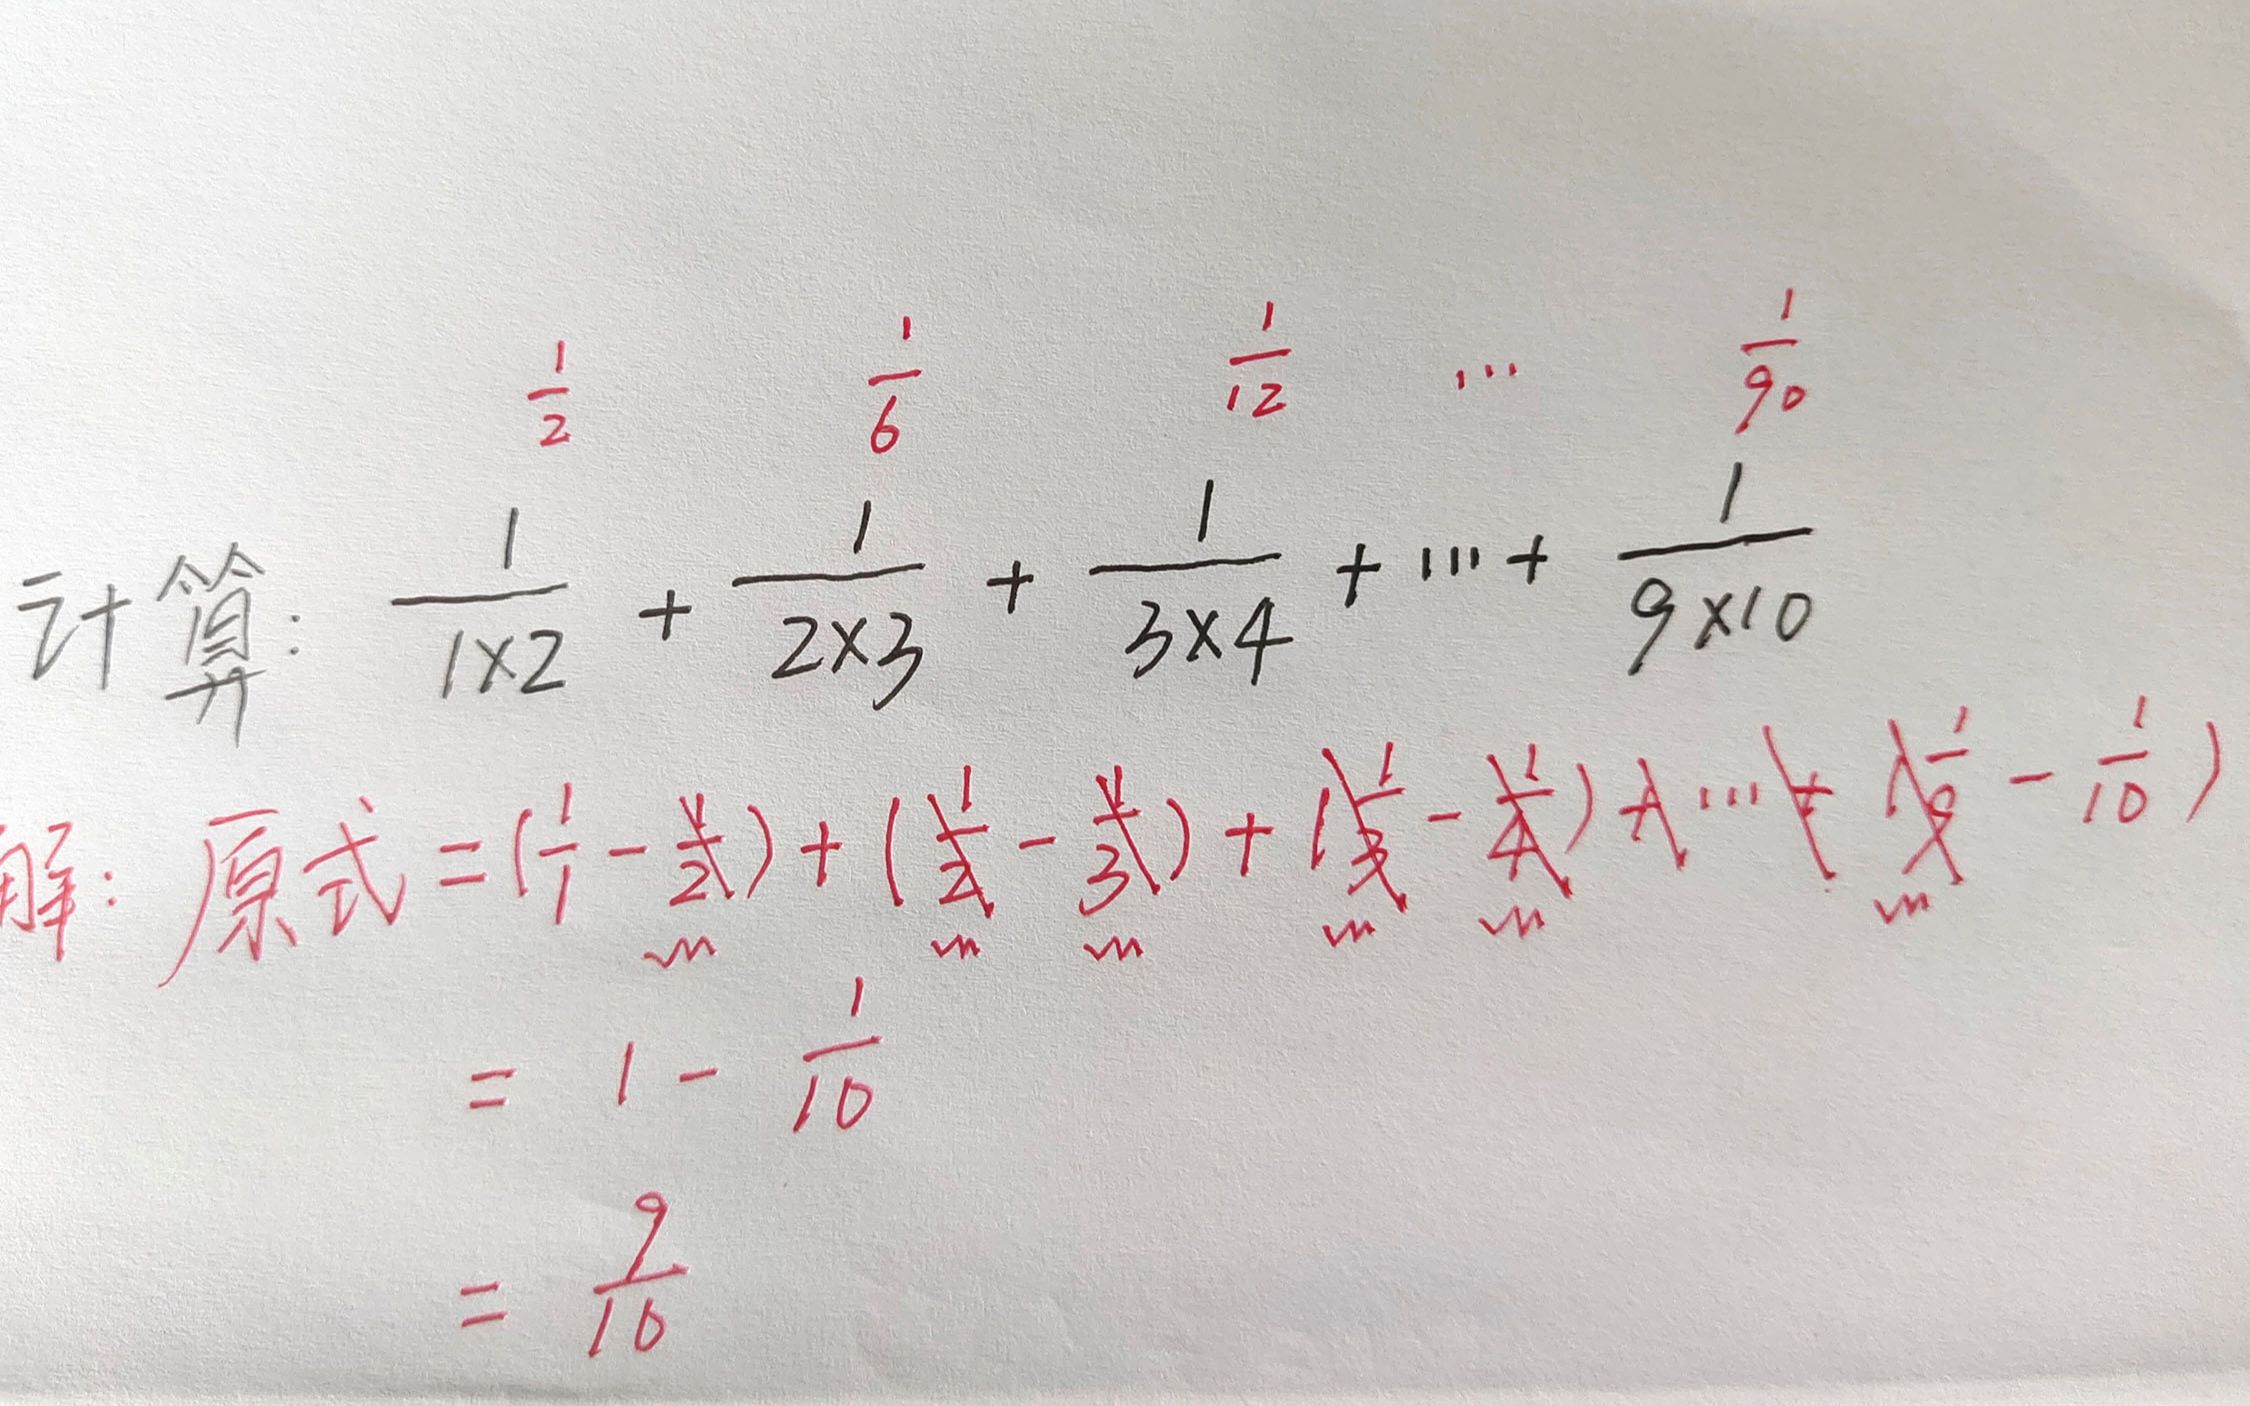 1/2 1/6 1/12 … 1/90
计算: 1/(1×2) + 1/(2×3) + 1/(3×4) + … + 1/(9×10)
解: 原式 = (1/1 - 1/2) + (1/2 - 1/3) + (1/3 - 1/4) + … + (1/9 - 1/10)
= 1 - 1/10
= 9/10